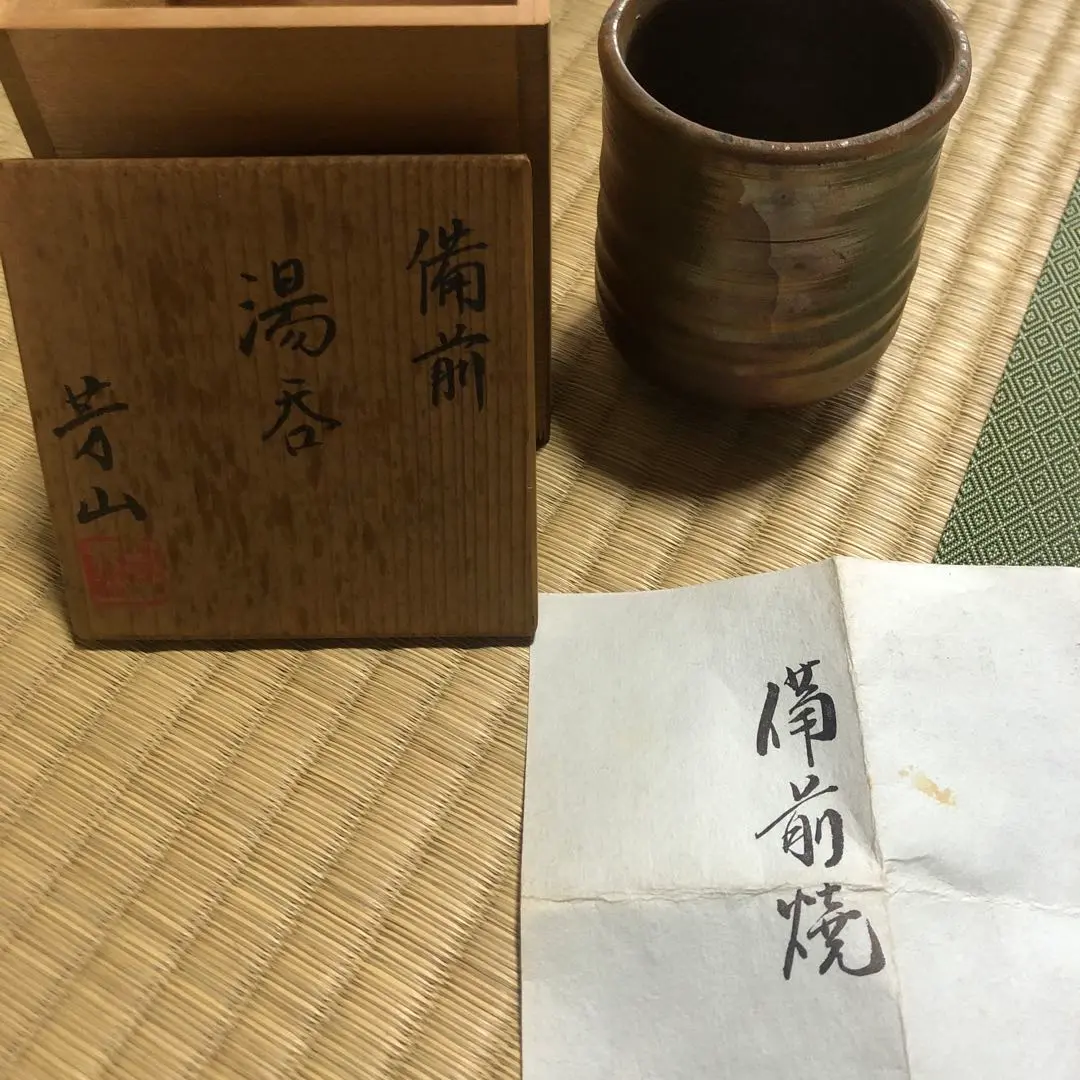 備前
湯呑
芳山
備前焼